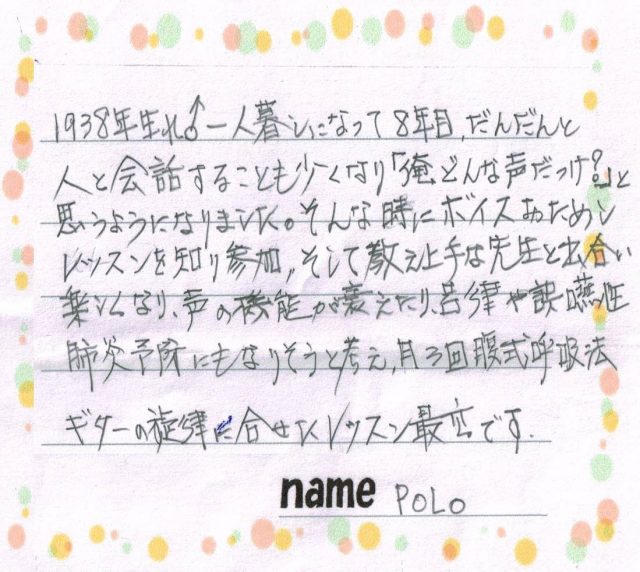 1938年生れ♂一人暮しになって8年目、だんだんと
人と会話することも少くなり「俺、どんな声だっけ?」と
思うようになりました。そんな時にボイスおためし
レッスンを知り参加、そして教え上手な先生と出合い
楽しくなり、声の機能が衰えたり、呂律や誤嚥性
肺炎予防にもなりそうと考え、月3回腹式呼吸法
ギターの旋律に合せたレッスン最高です.
name POLO